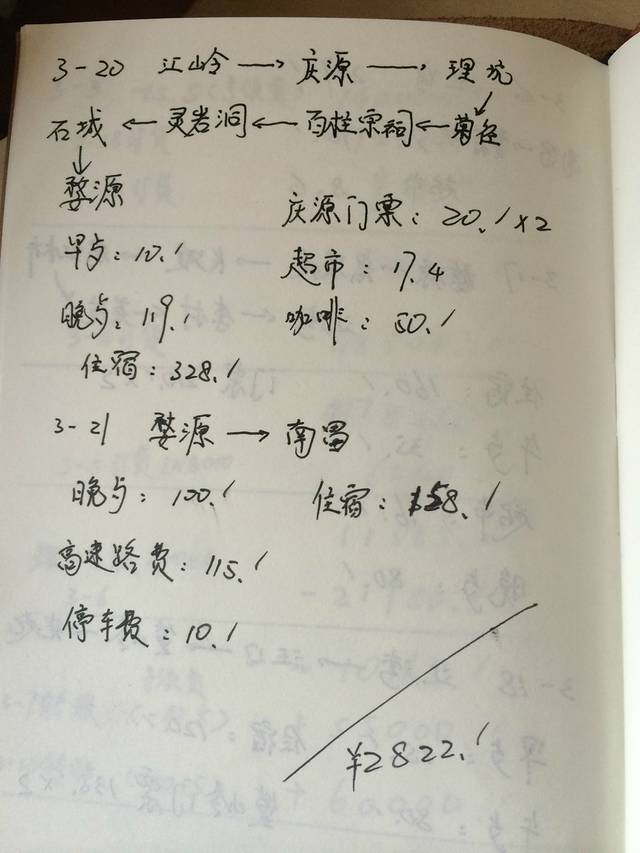 3-20 江岭 → 庆源 → 理坑
石城 ← 灵岩洞 ← 百柱宗祠 ← 菊径
↓
婺源
庆源门票: 20.1×2
早点: 10.1
超市: 17.4
晚点: 119.1
咖啡: 50.1
住宿: 328.1
3-21 婺源 → 南昌
晚点: 100.1 住宿: 158.1
高速路费: 115.1
停车费: 10.1
¥2822.1